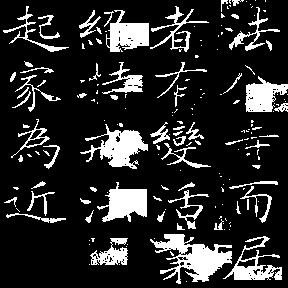 法公寺而居
者有變活業
絕持戒法
起家為近